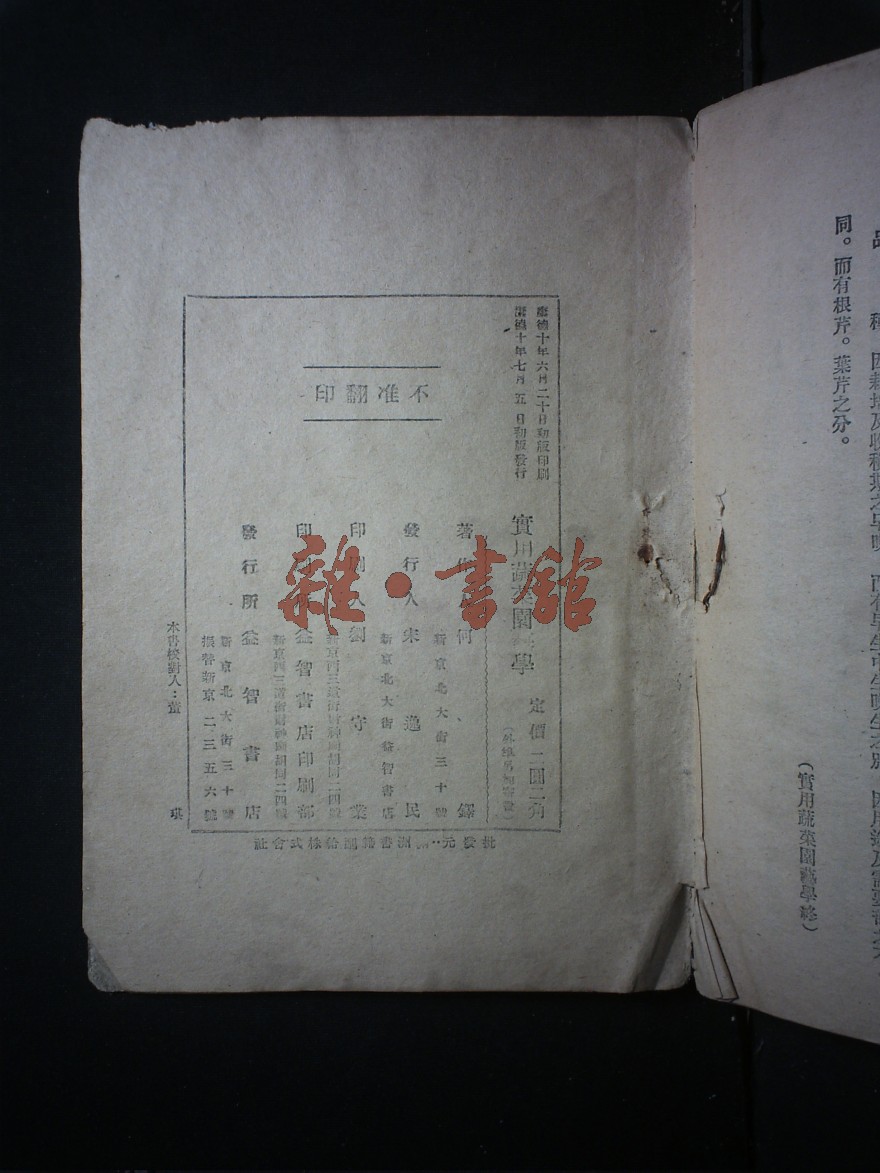 同。而有根芹。葉芹之分。
(實用蔬菜園藝學終)
康德十年六月二十日初版印刷
康德十年七月五日初版發行
不准翻印
實用蔬菜園藝學
定價二圓二角
著作人 何 鐸
新京北大街三十號
發行人 宋逸民
新京北大街益智書店
印刷人 劉守業
新京西三道街財神廟胡同二四號
印刷所 益智書店印刷部
新京西三道街財神廟胡同二四號
發行所 益智書店
新京北大街三十號
振替新京二三五六號
本書校對人：董 琪
批發元…洲書籍配給株式會社
雜·書館